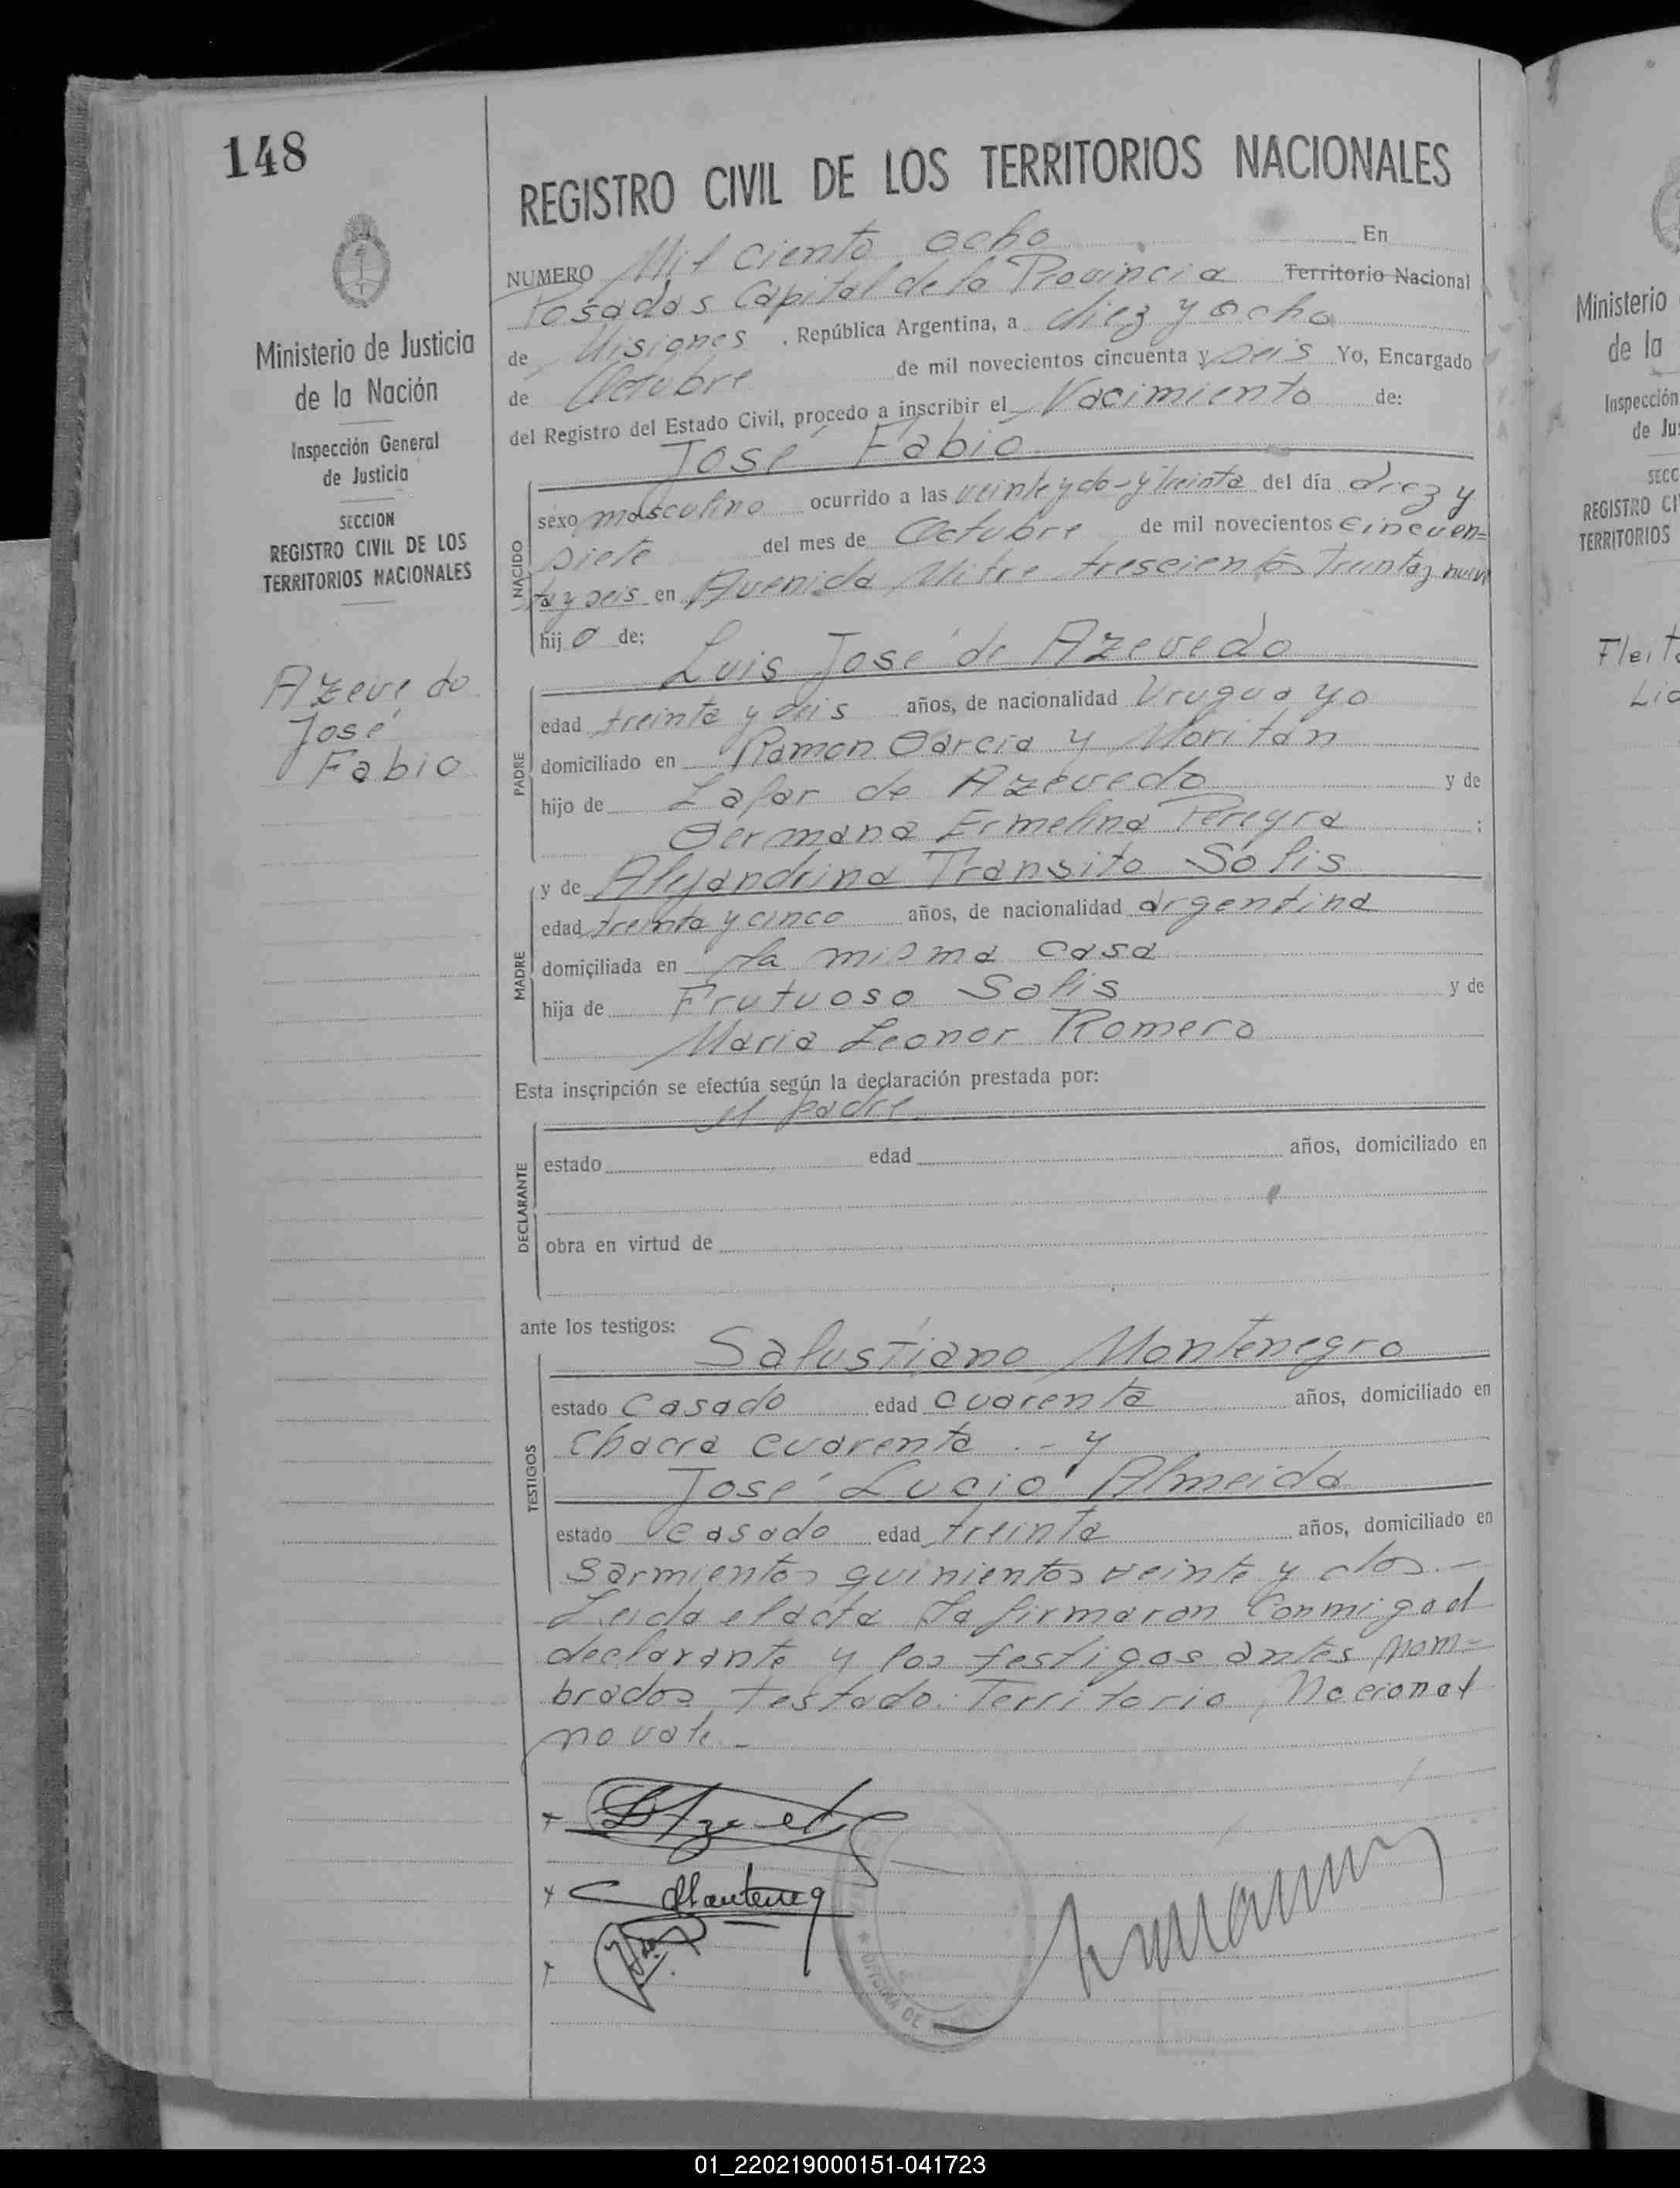 148
REGISTRO CIVIL DE LOS TERRITORIOS NACIONALES
Ministerio de Justicia
de la Nación
Inspección General
de Justicia
SECCION
REGISTRO CIVIL DE LOS
TERRITORIOS NACIONALES
Azevedo
José
Fabio
NUMERO Mil ciento ocho En
Posadas Capital de la Provincia Territorio Nacional
de Misiones , República Argentina, a diez y ocho
de Octubre de mil novecientos cincuenta y seis Yo, Encargado
del Registro del Estado Civil, procedo a inscribir el Nacimiento de:
José Fabio
NACIDO
sexo masculino ocurrido a las veinte y do- y treinta del día diez y
siete del mes de Octubre de mil novecientos cincuen=
ta y seis en Avenida Mitre trescientos treinta y nuev
hijo de:
Luis José de Azevedo
PADRE
edad treinta y seis años, de nacionalidad Uruguayo
domiciliado en Ramon Garcia y Moritán
hijo de Lafar de Azevedo y de
Germana Ermelina Pereyra ;
MADRE
y de Alejandrina Transito Sólis
edad treinta y cinco años, de nacionalidad argentina
domiciliada en la misma casa
hija de Frutuoso Solis y de
Maria Leonor Romero
Esta inscripción se efectúa según la declaración prestada por:
el padre
DECLARANTE
estado edad años, domiciliado en
obra en virtud de
ante los testigos:
Salustiano Montenegro
TESTIGOS
estado Casado edad cuarenta años, domiciliado en
Chacra cuarenta .- y
José Lucio Almeida
estado casado edad treinta años, domiciliado en
Sarmientos quinientos veinte y dos.-
Leida el acta la firmaron conmigo el
declarante y los testigos antes nom=
brados Testado: Territorio, Nacional
no vale.-
OFICINA DE
Ministerio
de la
Inspección
de Jus
SECC
REGISTRO CI
TERRITORIOS
Fleit
Lic
01_220219000151-041723